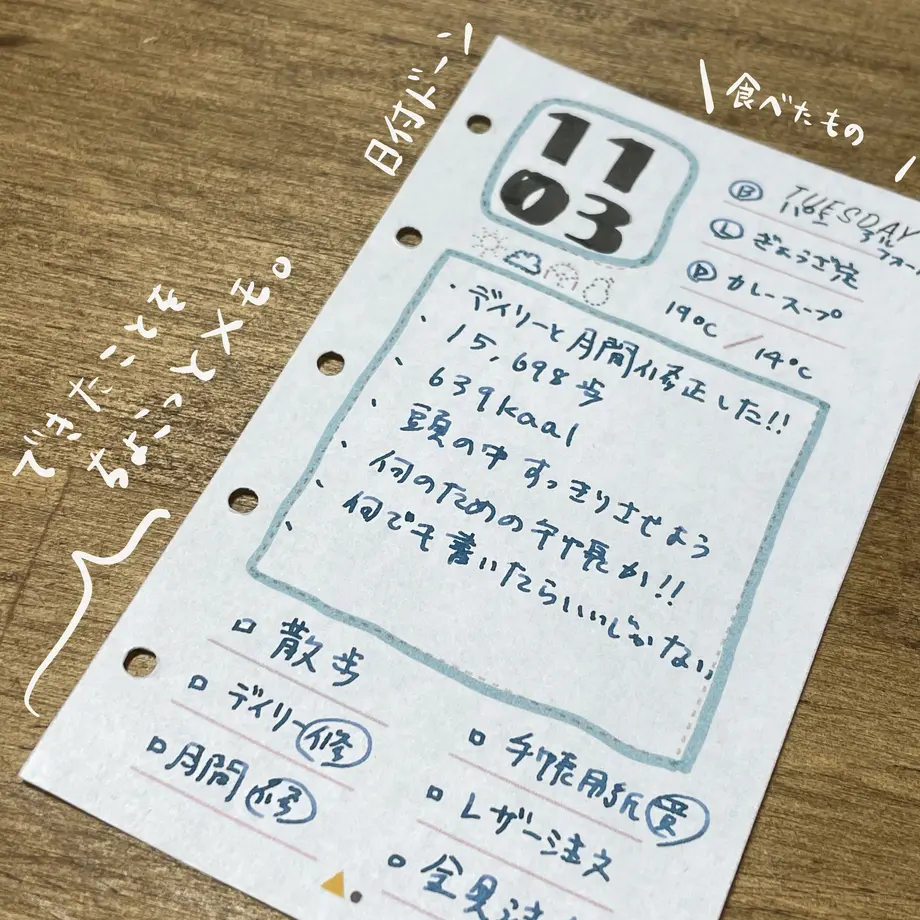 日付ドーン
食べたもの
できたことを
ちょこっとメモ。
11
03
TUESDAY
Ⓑ
Ⓛ ぎょうざ定
Ⓓ カレースープ
19℃ / 14℃
・デイリーと月間修正した!!
・15,698歩
・639kaal
・頭の中すっきりさせよう
・何のための手帳か!!
・何でも書いたらいいじゃない
散歩
デイリー修
月間修
手帳用紙買
レザー注文
金具注